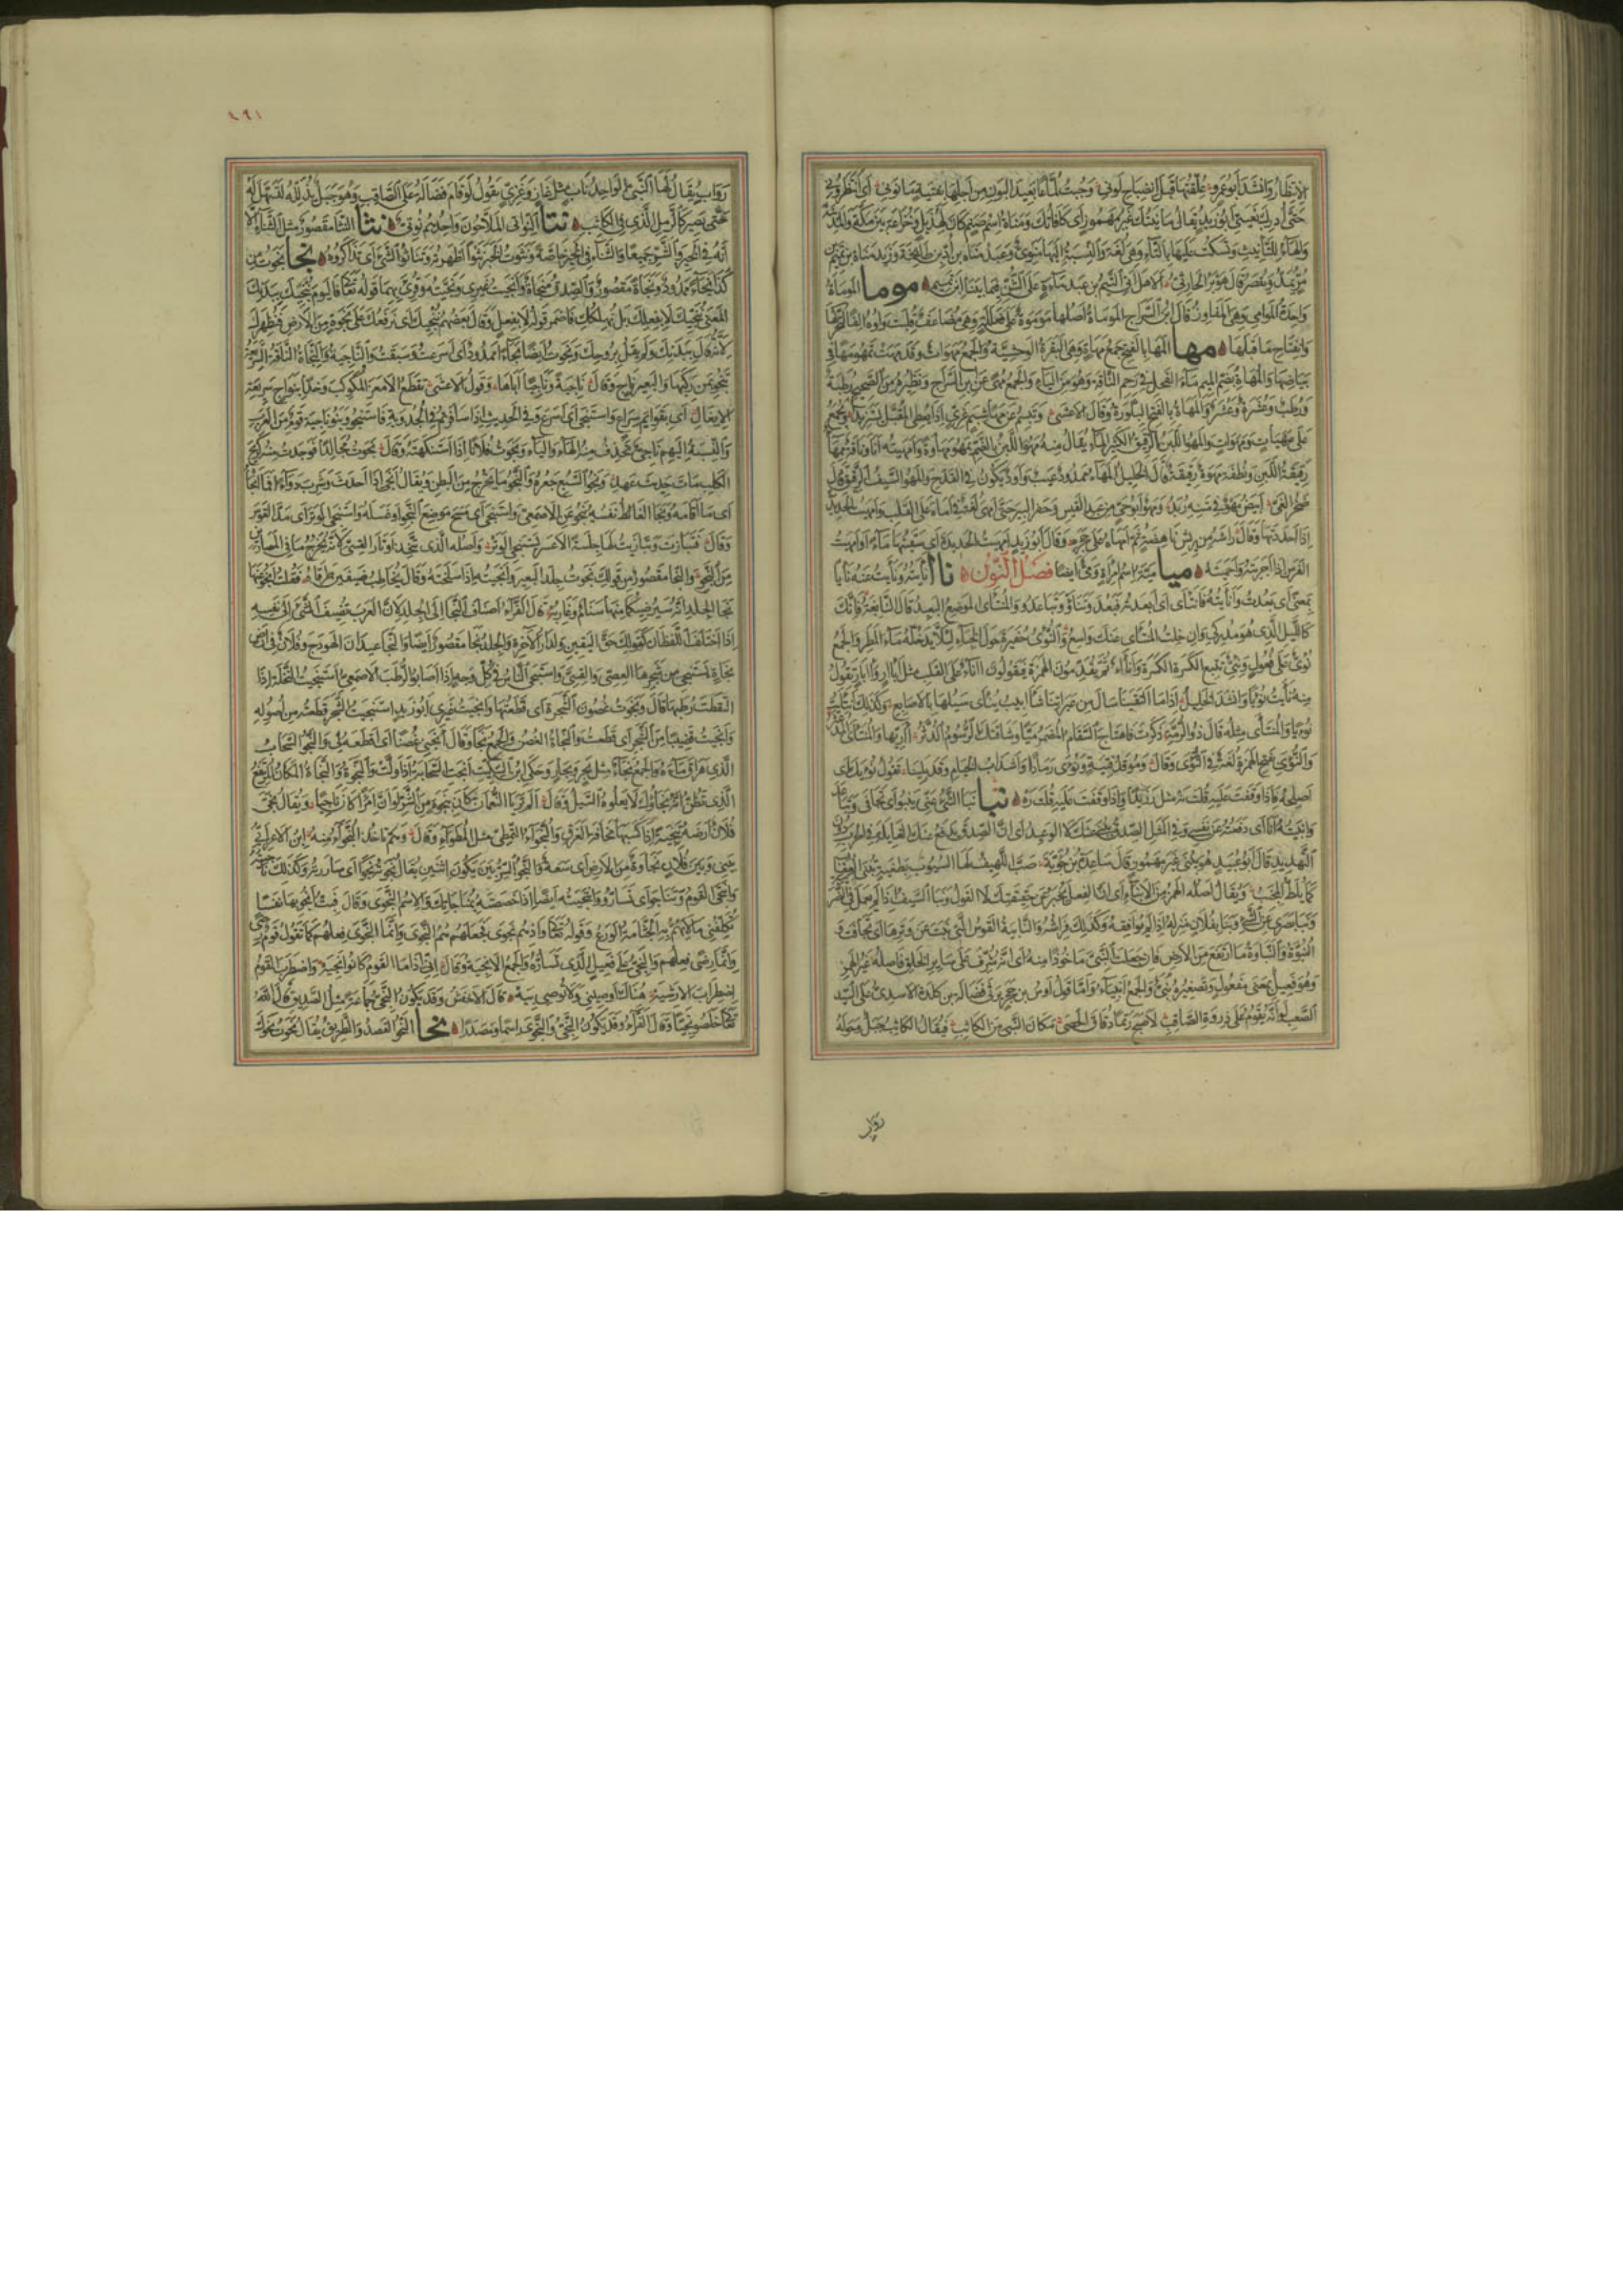 الانتظار وانشد ابو عمرو علقتها قبل انضباح لوني وجبت لماعا بعيد البون من اجلها بفتية مانوني اي انتظروني
حتى ادرك بغيتي ابو زيد يقال مانيتك غير مهموز اي كافاتك ومناة اسم صنم كان لهذيل وخزاعة بين مكة والمدينة
والهاء للتأنيث وتسكت عليها بالتاء وهي لغة والنسبة اليها منوي وعبد مناة بن اد بن طابخة وزيد مناة بن تميم
بن مر يمد ويقصر قال هوبر الحارثي الا هل اتى التيم بن عبد مناءة على الشنء فيما بيننا ابن تميم موما الموماة
واحدة الموامي وهي المفاوز قال ابن السراج الموماة اصلها موموة على فعللة وهو مضاعف قلبت واوه الفا لتحركها
وانفتاح ما قبلها مها المها بالفتح جمع مهاة وهي البقرة الوحشية والجمع مهوات وقد مهت تمهو مها في
بياضها والمهاة بضم الميم ماء الفحل في رحم الناقة وهو من الياء والجمع مهى عن ابن السراج ونظيره من الصحيح رطبة
ورطب وعشرة وعشر والمهاة بالفتح البلورة وقال الاعشى وتبسم عن مها شبم غري اذا يعطى المقبل يستزيد ويجمع
على مهيات ومهوات والمهو اللبن الرقيق الكثير الماء يقال منه مهو اللبن بالضم يمهو مهاوة وامهيته انا وناقة ممهاء
رقيقة اللبن ونطفة مهوة رقيقة قال الخليل المهاء ممدود عيب واود يكون في القدح والمهو السيف الرقيق قال
صخر الغي ابيض مهو في متنه ربد ومهو ابو حي من عبد القيس وحفر البير حتى امهى لغة في اماه على القلب وامهيت الحديدة
اذا احددتها وقال راشه من ريش ناهضة ثم امهاه على حجره وقال ابو زيد امهيت الحديدة اي سقيتها ماء وامهيت
الفرس اذا اجريته واحميته ميا مية اسم امراة ومي ايضا فصل النون ناا نايته ونايت عنه نايا
بمعنى اي بعدت وانايته فانتاى اي ابعدته فبعد وتناؤوا تباعدوا والمنتاى الموضع البعيد قال النابغة فانك
كالليل الذي هو مدركي وان خلت ان المنتاى عنك واسع والنؤي حفيرة حول الخباء لئلا يدخله ماء المطر والجمع
نؤي على فعول ونئي تتبع الكسرة الكسرة وانآء ثم يقدمون الهمزة فيقولون اناء على القلب مثل ابآر وآبار تقول
منه نايت نؤيا وانشد الخليل اذا ما التقينا سال من عبراتنا شآبيب يناى سيلها بالاصابع وكذلك انتايت
نؤيا والمنتاى مثله قال ذو الرمة ذكرت فاهتاج السقام المضمر ميا وشاقتك الرسوم الدثر آريها والمنتاى المدعثر
والنؤى بفتح الهمزة لغة في النؤي وقال وموقد فتية ونؤى رماد واشذاب الخيام وقد بلينا تقول نؤيك اي
اصلحه فاذا وقفت عليه قلت نه مثل ر زيدا واذا وقفت عليه قلت ره نبا نبا الشيء عني ينبو اي تجافى وتباعد
وانبيته انا اي دفعته عن نفسي وفي المثل الصدق ينبي عنك لا الوعيد اي ان الصدق يدفع عنك الغائلة في الحرب دون
التهديد قال ابو عبيد هو ينبي غير مهموز قال ساعدة بن جؤية صب اللهيف لها السبوب بطغية تنبي العقاب
كما يلط المجنب ويقال اصله الهمز من الانباء اي ان الفعل يخبر عن حقيقتك لا القول ونبا السيف اذا لم يعمل في الضريبة
ونبا بصري عن الشيء ونبا بفلان منزله اذا لم يوافقه وكذلك فراشه والنابية القوس التي نبت عن وترها اي تجافت و
النبوة والنباوة ما ارتفع من الارض فان جعلت النبي ماخوذا منه اي انه شرف على ساير الخلق فاصله غير الهمز
وهو فعيل بمعنى مفعول وتصغيره نبي والجمع انبياء واما قول اوس بن حجر يرثي فضالة بن كلدة الاسدي على السيد
الصعب لو انه يقوم على ذروة الصاقب لاصبح رتما دقاق الحصى مكان النبي من الكاثب فيقال الكاثب جبل وحوله
رواب
١٩١
رواب يقال لها النبي الواحد ناب مثل غاز وغزي يقول لو قام فضالة على الصاقب وهو جبل يذلله لتسهل له
حتى يصير كالرمل الذي في الكاثب نتا النواتي الملاحون واحدهم نوتي نثا النثا مقصور مثل الثناء الا
انه في الخير والشر جميعا والثناء في الخير خاصة ونثوت الخبر نثوا اظهرته وتناثوا الشيء اي تذاكروه نجا نجوت من
كذا نجاء ممدود ونجاة مقصور والصدق منجاة وانجيت غيري ونجيته وقرئ بهما قوله تعالى فاليوم ننجيك ببدنك
المعنى ننجيك لا بفعل بل نهلكك فاضمر قوله لا بفعل وقال بعضهم ننجيك اي نرفعك على نجوة من الارض فنظهرك
لانه قال ببدنك ولم يقل بروحك ونجوت ايضا نجاء ممدود اي اسرعت وسبقت والناجية والنجاة الناقة السريعة
تنجو بمن ركبها والبعير ناج وقال ناجية وناجيا اباها وقول الاعشى تقطع الامعز المكوكب وخدا بنواج سريعة
الايغال اي بقوائم سراع واستنجى اي اسرع وفي الحديث اذا سافرتم في الجدوبة فاستنجوا وبنو ناجية قوم من العرب
والنسبة اليهم ناجي تحذف منه الهاء والياء ونجوت فلانا اذا استنكهته وقال نجوت مجالدا فوجدت منه كريح
الكلب مات حديث عهد ونجو السبع جعره والنجو ما يخرج من البطن ويقال انجى اذا احدث وشرب دواء فما انجاه
اي ما اقامه ونجا الغائط نفسه ينجو عن الاصمعي واستنجى اي مسح موضع النجو او غسله واستنجى الوتر اي مد القوس
وقال فتبازت وتبازيت لها جلسة الاعسر يستنجي الوتر واصله الذي يتخذ اوتار القسي لانه يخرج ما في المصارين
من النجو والنجا مقصور من قولك نجوت جلد البعير وانجيته اذا سلخته وقال يخاطب ضيفين طرقاه فقلت انجوا عنها
نجا الجلد انه سيرضيكما منها سنام وغاربه قال الفراء اضاف النجا الى الجلد لان العرب تضيف الشيء الى نفسه
اذا اختلف اللفظان كقولك حق اليقين ولدار الآخرة والجلد نجا مقصور ايضا والنجا عيدان الهودج وفلان في ارض
نجاة يستنجي من شجرها العصي والقسي واستنجى الناس في كل وجه اذا اصابوا الرطب الاصمعي استنجيت النخلة اذا
التقطت رطبها قال ونجوت غصون الشجرة اي قطعتها وانجيت غيري ابو زيد استنجيت الشجر قطعته من اصوله
وانجيت قضيبا من الشجر اي قطعت والنجاة الغصن والجمع نجا وقال انجني غصنا اي اقطعه لي والنجو السحاب
الذي هراق ماءه والجمع نجاء مثل بحر وبحار وحكى ابن السكيت انجت السحابة اذا ولت والنجوة والنجاة المكان المرتفع
الذي تظن انه نجاؤك لا يعلوه السيل وقال الم تريا النعمان كان بنجوة من الشر لو ان امرأ كان ناجيا ويقال نجى
فلان ارضه تنجية اذا كبسها مخافة الغرق والنجواء التمطي مثل المطواء وقال وهم تاخذ النجواء منه ابن الاعرابي
بيني وبين فلان نجاوة من الارض اي سعة والنجو السر بين يكون اثنين يقال نجوته نجوا اي ساررته وكذلك ناجيته
وانتجى القوم وتناجوا اي تساروا وانتجيته ايضا اذا خصصته بمناجاتك والاسم النجوى وقال فبت انجو بها نفسا
تكلفني ما لا يهم به الجثامة الورع وقوله تعالى واذ هم نجوى فجعلهم هم النجوى وانما النجوى فعلهم كما تقول قوم رضى
وانما رضى فعلهم والنجي على فعيل الذي تساره والجمع الانجية وقال اني اذا ما القوم كانوا انجيه واضطرب القوم
اضطراب الارشيه هناك اوصيني ولا توصي بيه قال الاخفش وقد يكون النجي جماعة مثل الصديق قال الله
تعالى خلصوا نجيا وقال الفراء وقد يكون النجي والنجوى اسما ومصدرا نحا النحو القصد والطريق يقال نحوت نحوك